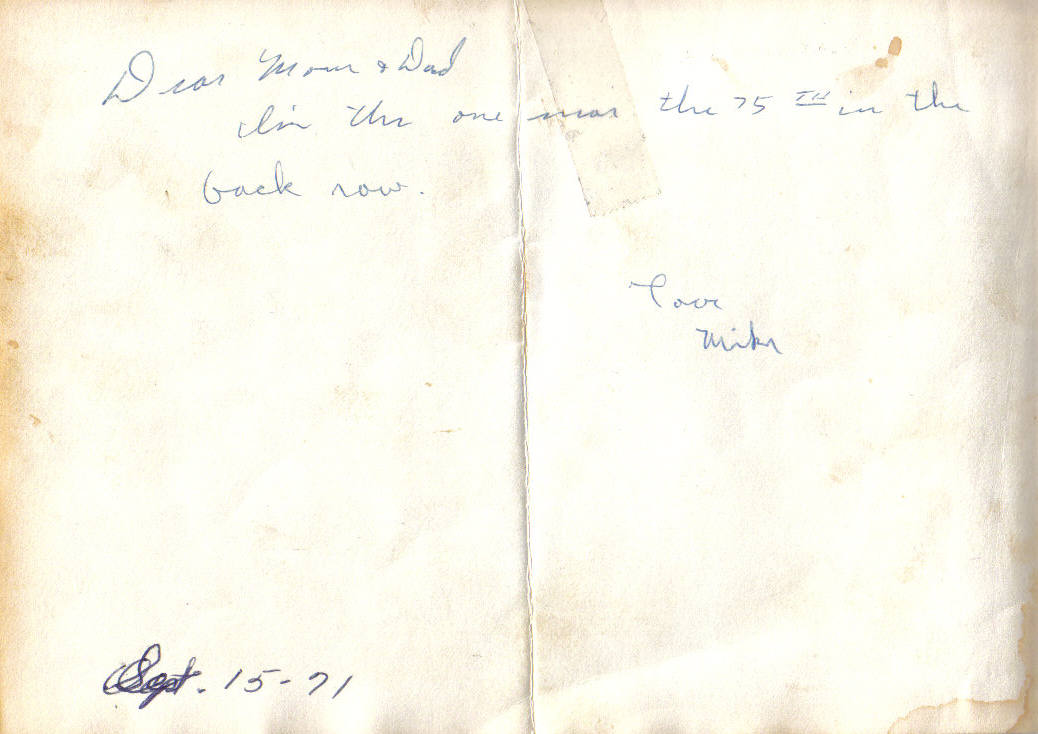 Dear Mom & Dad
I'm the one near the 75TH in the
back row.
Love
Mike
Sept. 15-71